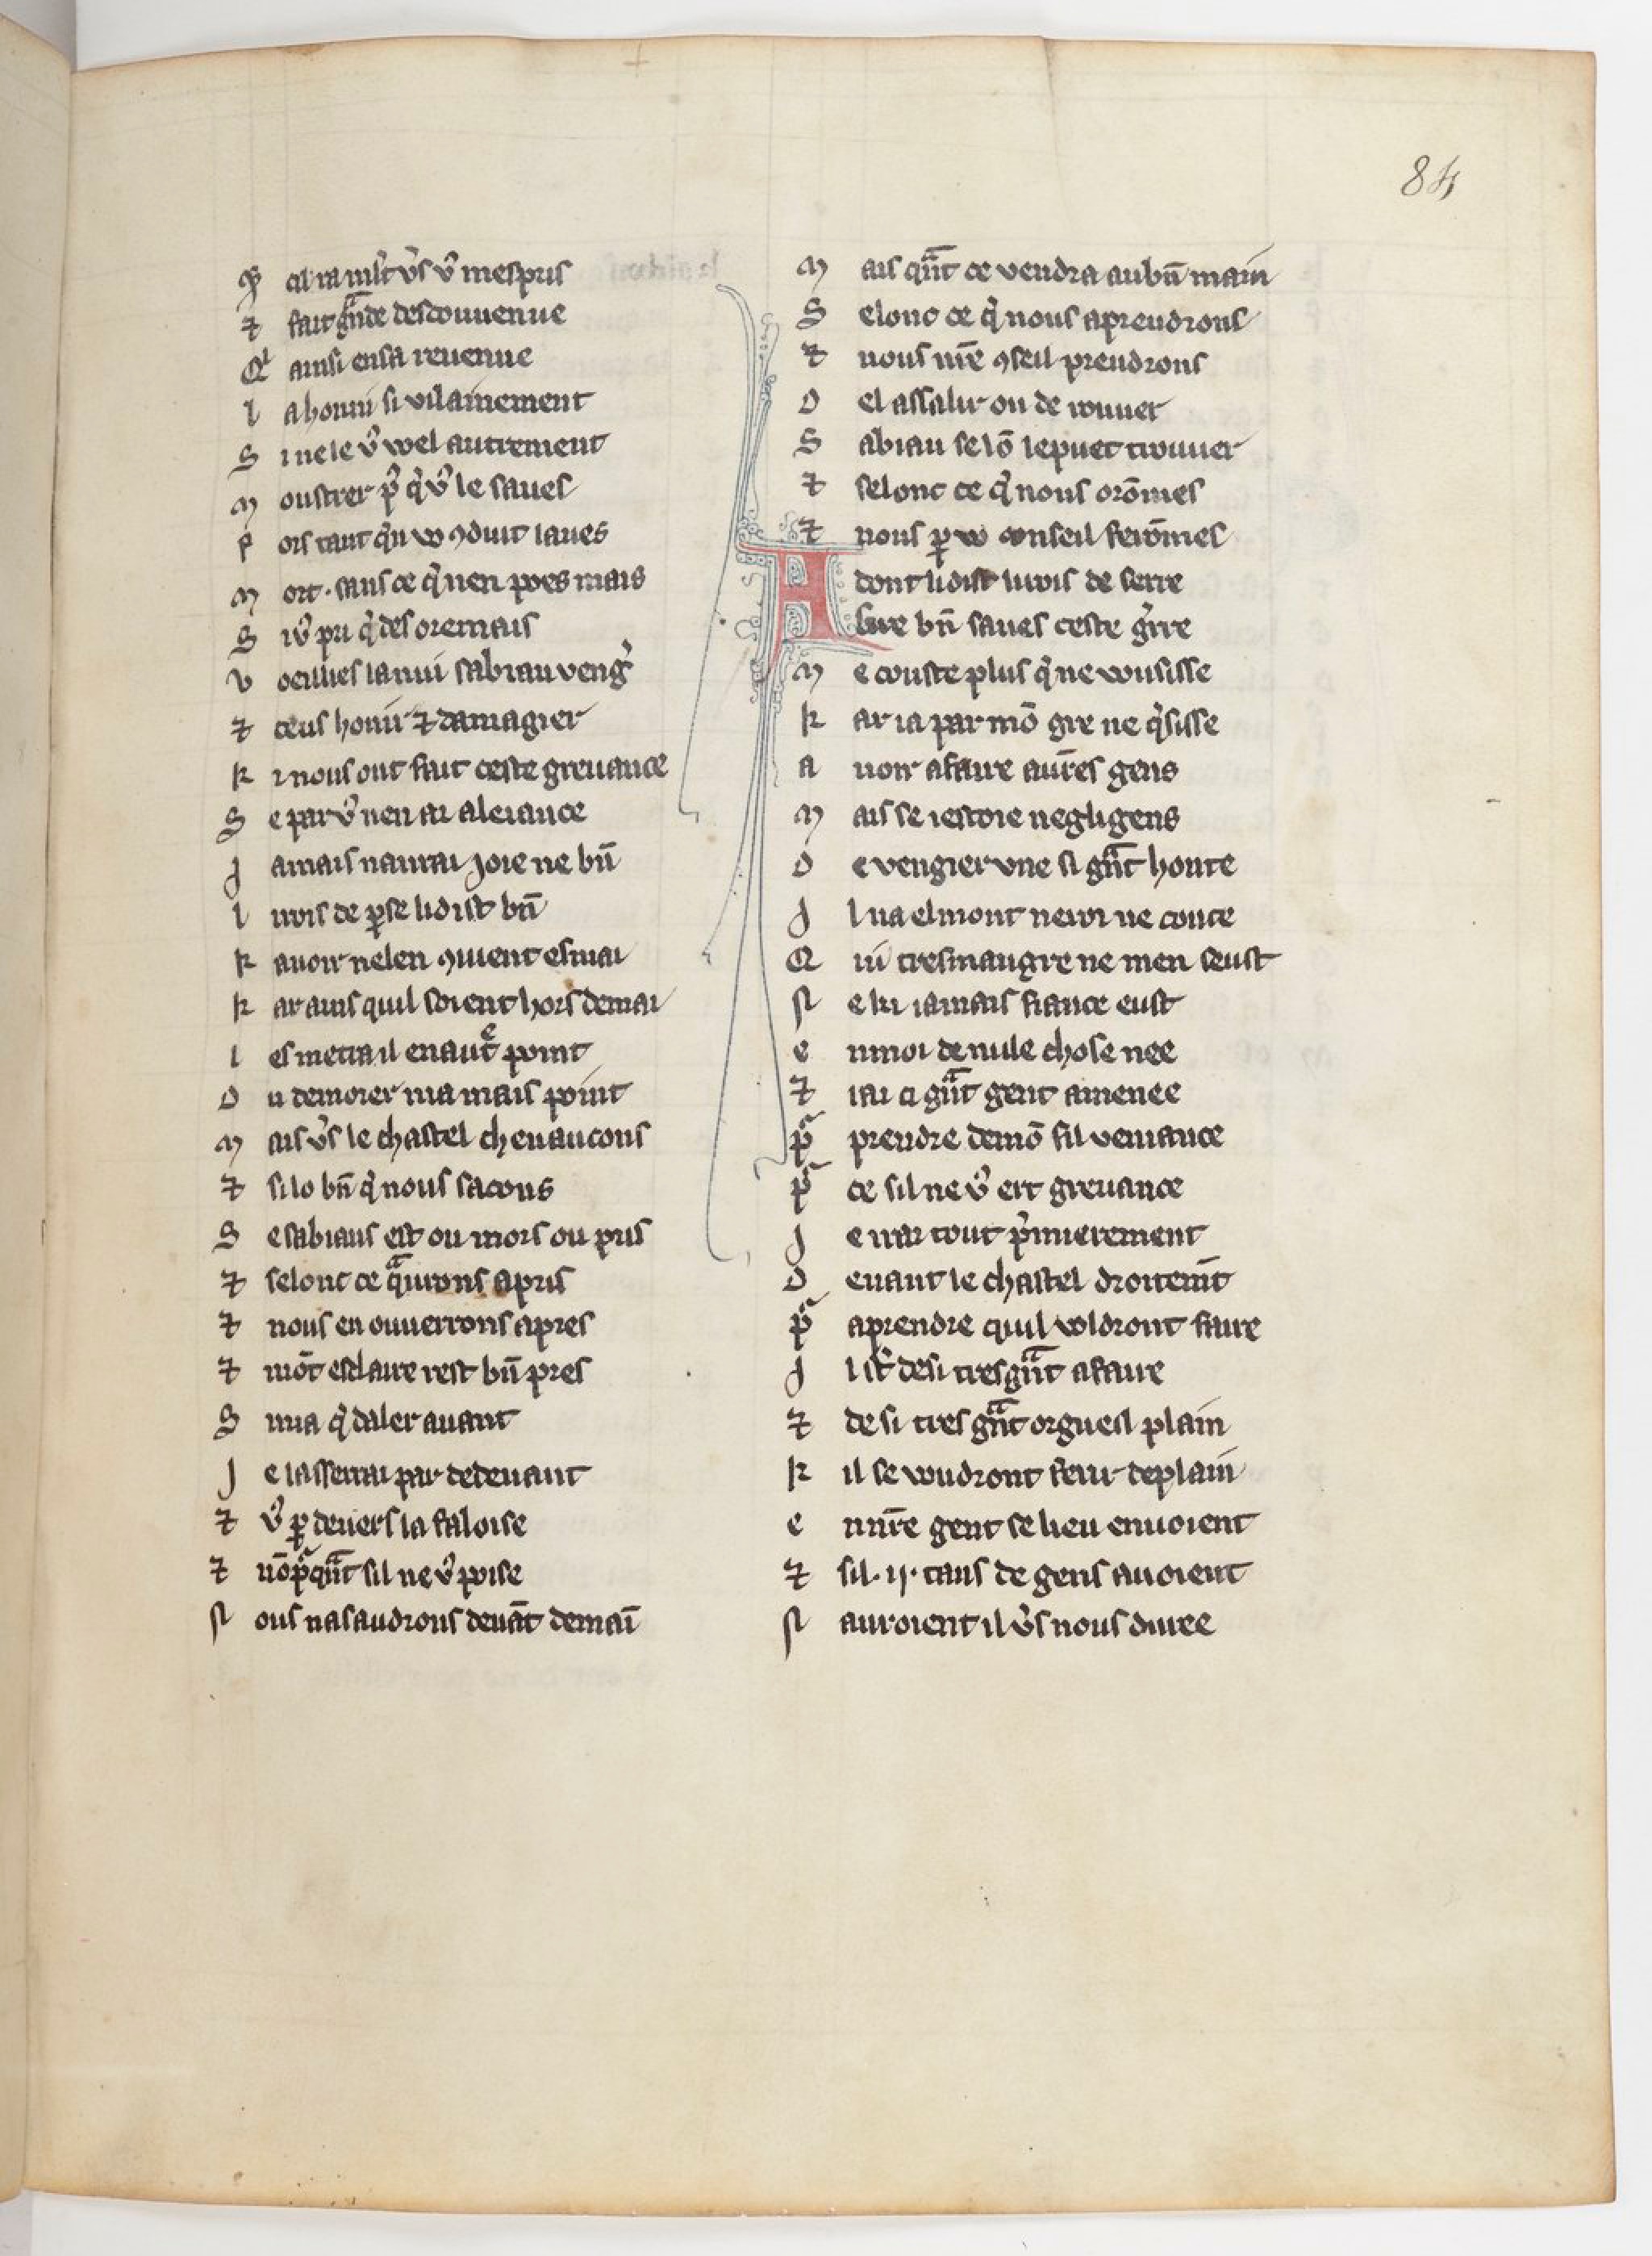 84
⁊ fait gnde desconuenue
Qi ainsi ensa reuenue
l a honni si vilainement
S i nele v̾ voel autrement
M oustrer p̾ q̾ v̾ le saues
P ors tant qͥn vo ꝯduit iaues
M ort · sans ce q̾ nen poes mais
S i v̾ pri q̾ des oremais
V oeillies la nui sabiau veng̾
⁊ ceus honir ⁊ damagier
K i nous ont fait ceste greuance
S e par v̾ nen ai aleiance
J amais naurai joie ne bn̄
l i rois de ꝑse li dist bn̄
K auoir nelen ꝯuient esmai
K ar ains quil soient hors demai
l es metra il en autͤ point
O u demorer ni a mais point
M ais v̾s le chastel cheuaucons
⁊ si lo bn̄ q̾ nous sacons
S e sabiaus est ou mors ou pris
⁊ selonc ce qͣurons apris
⁊ nous en ouuerrons apres
⁊ mōt esclaire rest bn̄ pres
S ni a q̾ daler auant
J e lasserrai par dedeuant
⁊ v̾ ꝑ deuers la faloise
⁊ nō pͬqͣnt sil ne v̾ poise
N ous nasaudrons deuāt demaī
M ais qͣnt ce vendra au bn̄ main
S elonc ce q̾ nous aprendrons
⁊ nous nr̄e ꝯseil prendrons
D el assalir ou de rouuer
S abiau se lō le puet trouuer
⁊ selonc ce q̾ nous orōmes
⁊ nous ꝑ vo conseil ferōmes
A dont li dist li rois de serre
Sire bn̄ saues ceste g̾rre
M e couste plus q̾ ne vousisse
K ar ia par mō gre ne q̾sisse
A uoir afaire autres gens
M ais se iestoie negligens
D e vengier vne si gͣnt honte
J l na el mont ne roi ne conte
Q ui tres maugre ne men seust
N e ki iamais fiance eust
E n moi de nule chose nee
⁊ iai ci gͣnt gent amenee
Pͬ prendre de mō fil veniance
Pͬ ce sil ne v̾ ert greuance
J e irai tout p̾mierement
D euant le chastel droitemt̄
Pͬ aprendre quil voldront faire
J l st̄ de si tres gͣnt afaire
⁊ de si tres gͣnt orgueil plain
K il se voudront ferir de plain
E n nr̄e gent se lieu en uoient
⁊ sil · ij · tans de gens auoient
N auroient il v̾s nous duree